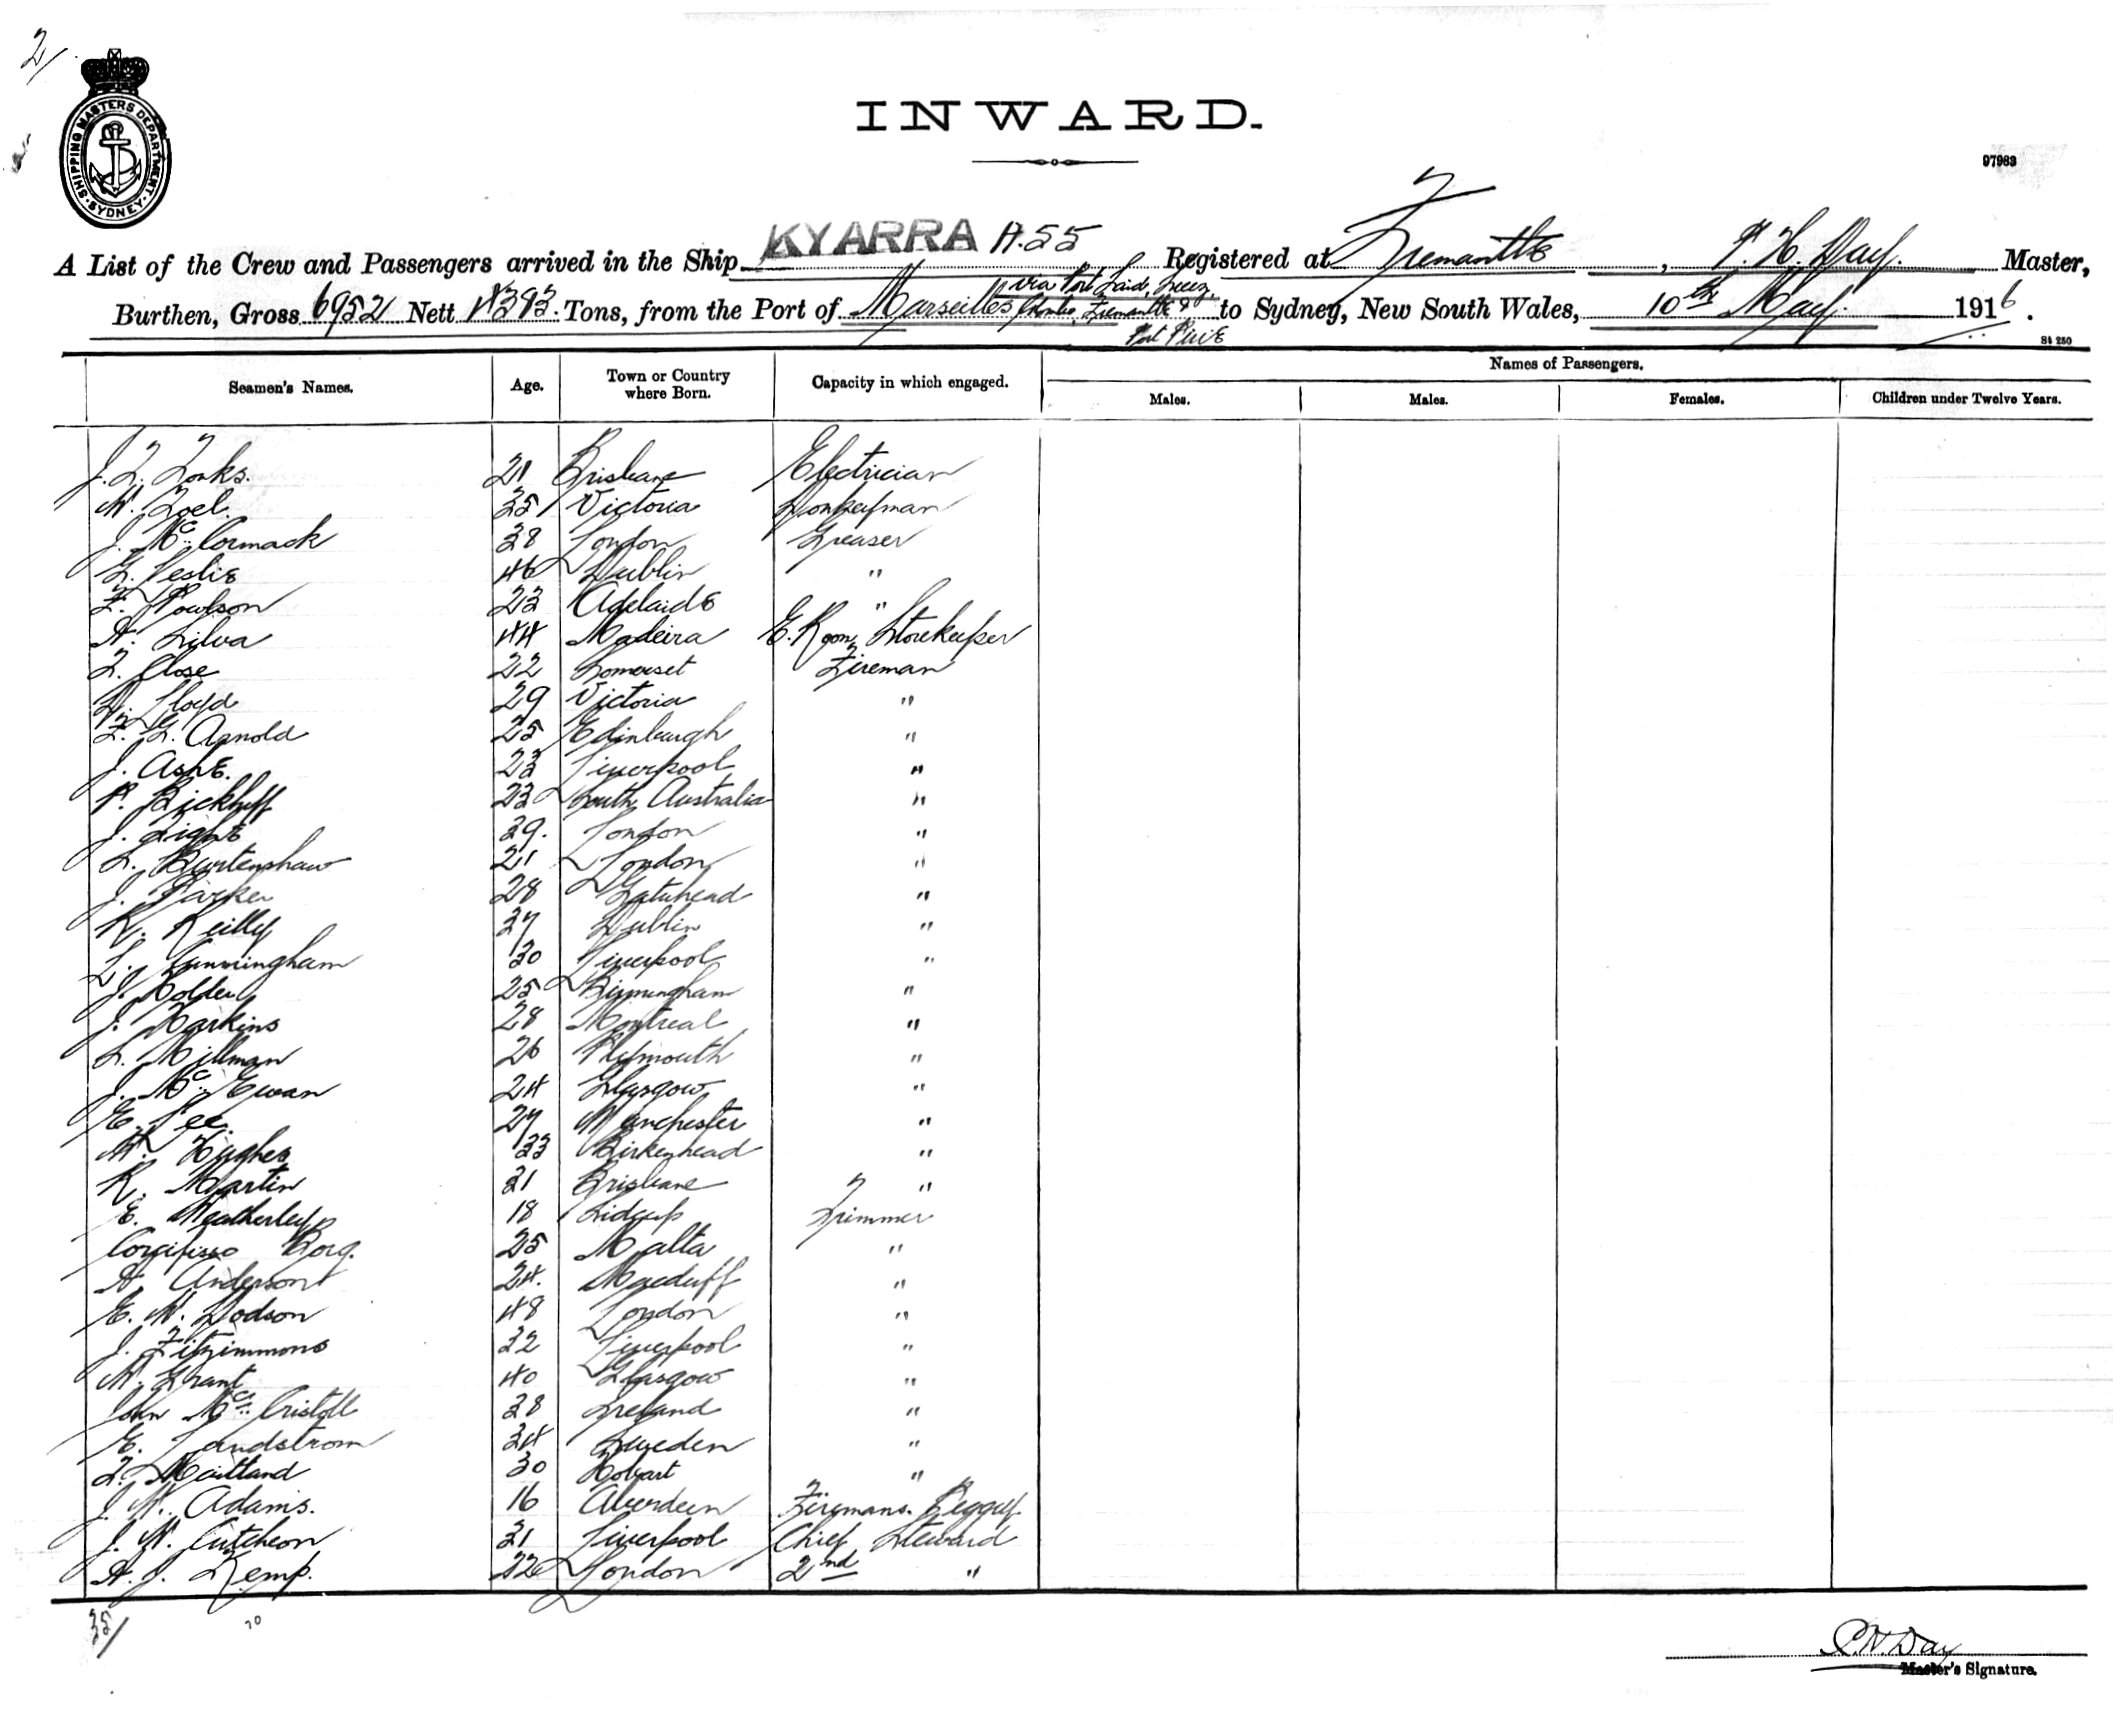 2/
SHIPPING MASTERS DEPARTMENT
SYDNEY
INWARD.
97983
A List of the Crew and Passengers arrived in the Ship KYARRA A.55 Registered at Fremantle, P. H. Day. Master,
via Port Said, Suez,
Burthen, Gross 6952 Nett 4383. Tons, from the Port of Marseilles Colombo, Fremantle & to Sydney, New South Wales, 10th May. 1916.
Port Pirie
84 250
Seamen's Names. Age. Town or Country where Born. Capacity in which engaged. Names of Passengers.
Males. Males. Females. Children under Twelve Years.
J. T. Tonks. 21 Brisbane Electrician
W. 35 Victoria Donkeyman
J. McCormack 38 London Greaser
G. Leslie 46 Dublin "
F. Powlson 23 Adelaide "
A. Silva 44 Madeira E. Room Storekeeper
F. Close 22 Somerset Fireman
D. Lloyd 29 Victoria "
F. G. Arnold 25 Edinburgh "
J. Ashe. 23 Liverpool "
P. 23 South Australia "
J. Light 39. London "
L. Burtenshaw 21 London "
J. Parker 28 Gateshead "
R. Reilly 37 Dublin "
S. Cunningham 30 Liverpool "
J. Holden 25 Birmingham "
J. Harkins 28 Montreal "
S. Millman 26 Plymouth "
J. McEwan 24 Glasgow "
E. Lee. 27 Manchester "
W. Hughes 33 Birkenhead "
R. Martin 21 Brisbane "
E. Weatherley 18 Sidcup Trimmer
Borg. 25 Malta "
A. Anderson 24. Macduff "
E. W. Dodson 48 London "
J. Fitzimmons 32 Liverpool "
W. Grant 40 Glasgow "
John Mc 38 Ireland "
E. Landstrom 34 Sweden "
F. Maitland 30 Hobart "
J. W. Adams. 16 Aberdeen Firemans. Peggy
J. W. Cutcheon 31 Liverpool Chief Steward
A. J. Kemp. 32 London 2nd "
35/
70
P. H. Day
Master's Signature.